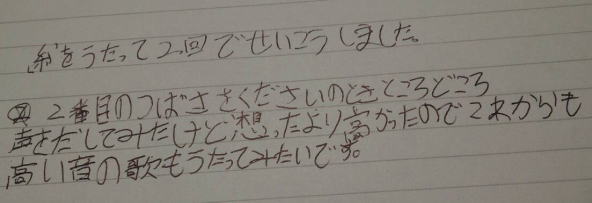 糸をうたって2回でせいこうしました。
2番目のつばさくださいのときところどころ
声をだしてみたけど想ったより高かったのでこれからも
高い音の歌もうたってみたいです。